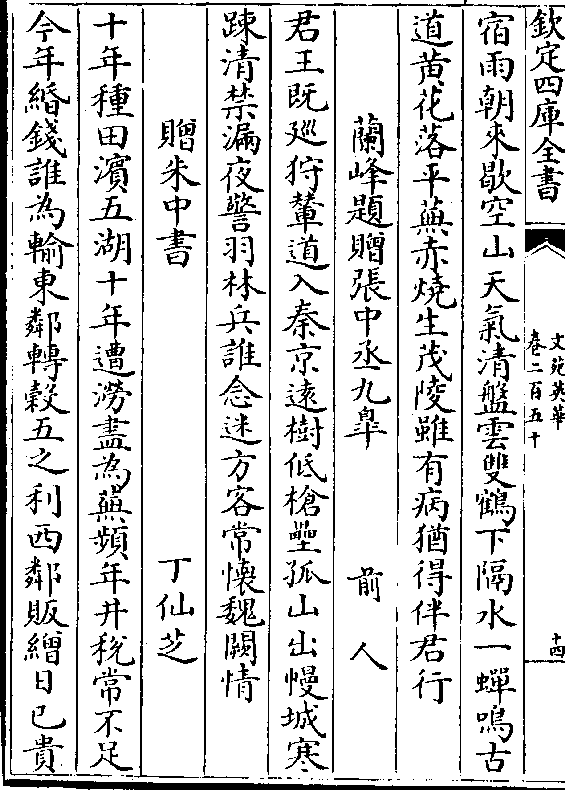 欽定四庫全書
文苑英華
卷二百五十
十四
宿雨朝來歇空山天氣清盤雲雙鶴下隔水一蟬鳴古
道黄花落平蕪赤燒生茂陵雖有病猶得伴君行
蘭峰題贈張中丞九臯 前人
君王既廵狩輦道入秦京遠樹低槍壘孤山出幔城寒
踈清禁漏夜警羽林兵誰念迷方客常懷魏闕情
贈朱中書 丁仙芝
十年種田濱五湖十年遭澇盡為蕪頻年井稅常不足
今年緡錢誰為輸東鄰轉穀五之利西鄰販繒日已貴